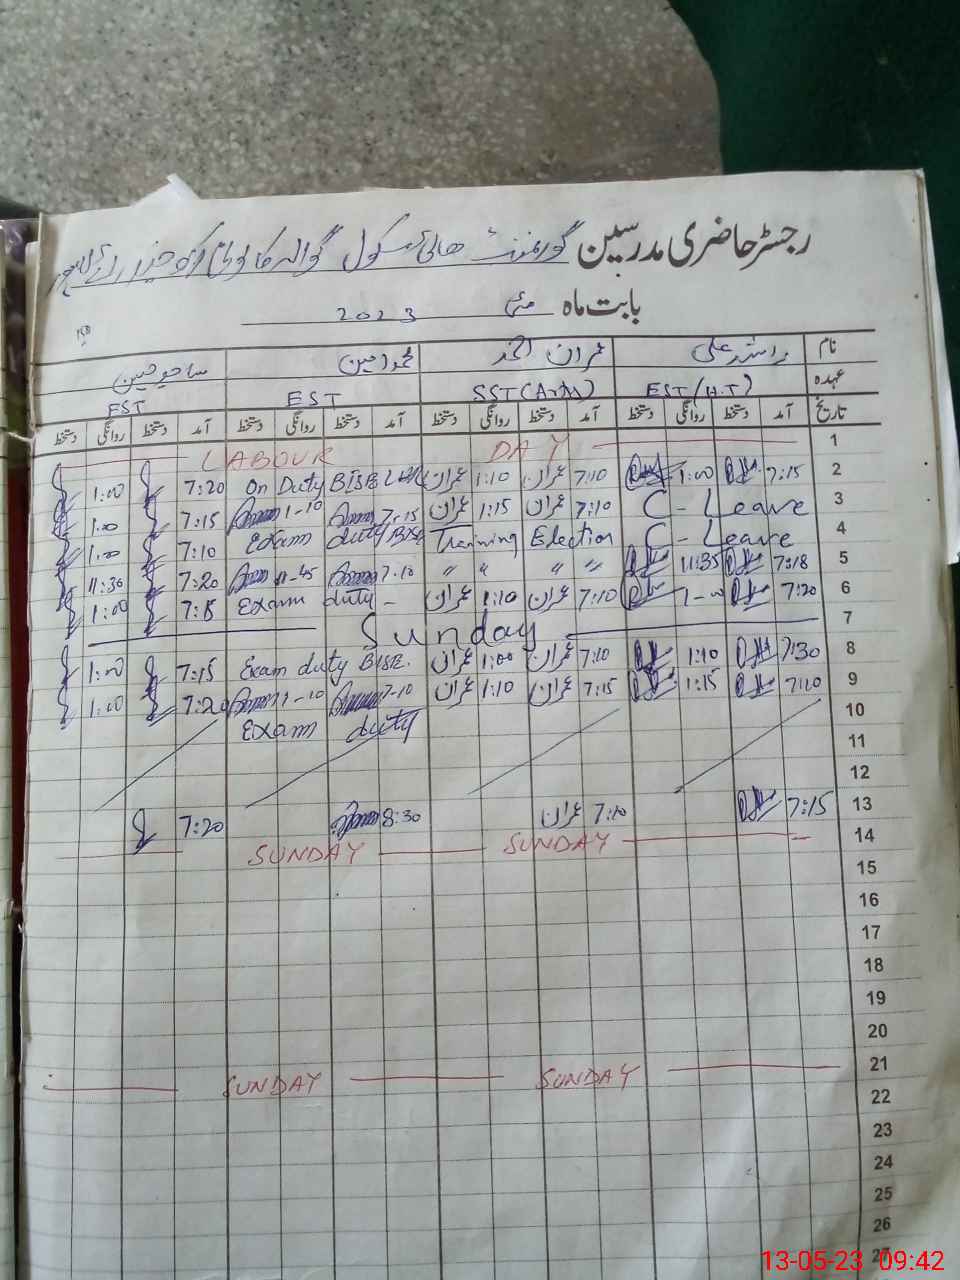 رجسٹر حاضری مدرسین گورنمنٹ ھائی سکول گوالہ کالونی
بابت ماہ مئی 2023
نام راشد علی عمران احمد محمد امین ساجد حسین
عہدہ EST (H.T) SST (Arts) EST EST
تاریخ آمد دستخط روانگی دستخط آمد دستخط روانگی دستخط آمد دستخط روانگی دستخط آمد دستخط روانگی دستخط
1 LABOUR DAY
2 7:15 1:00 7:10 عمران 1:10 عمران On Duty BISE LHR 7:20 1:00
3 C - Leave 7:10 عمران 1:15 عمران 7-15 1-10 7:15 1:00
4 C - Leave Training Election Exam duty BISE 7:10 1:00
5 7:18 11:35 " " " " 7-10 11-45 7:20 11:30
6 7:20 1-00 7:10 عمران 1:10 عمران Exam duty - 7:15 1:00
7 Sunday
8 7:30 1:10 7:10 عمران 1:00 عمران Exam duty BISE. 7:15 1:00
9 7:10 1:15 7:15 عمران 1:10 عمران 7-10 1-10 7:20 1:00
10 Exam duty
11
12
13 7:15 7:10 عمران 8:30 7:20
14 SUNDAY SUNDAY
15
16
17
18
19
20
21 SUNDAY SUNDAY
22
23
24
25
26
27
13-05-23 09:42